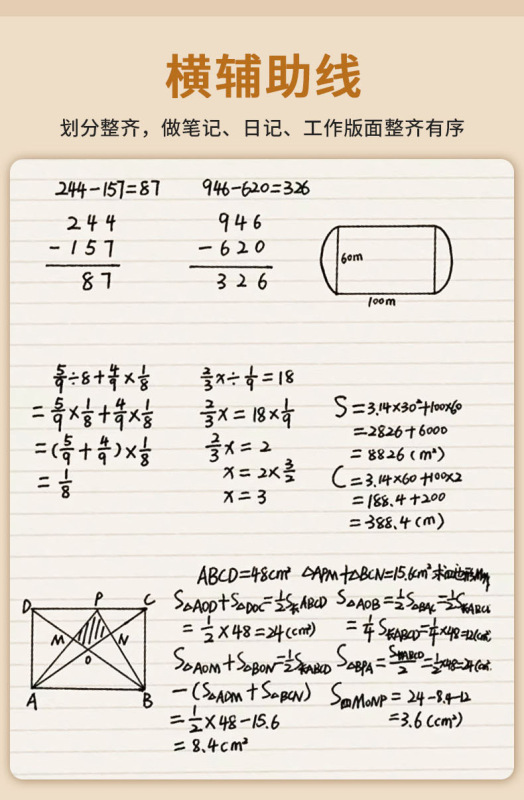 横辅助线
划分整齐，做笔记、日记、工作版面整齐有序
244-157=87
244
-157
87
946-620=326
946
-620
326
60m
100m
5/9÷8+4/9×1/8
=5/9×1/8+4/9×1/8
=(5/9+4/9)×1/8
=1/8
2/3x÷1/9=18
2/3x=18×1/9
2/3x=2
x=2×3/2
x=3
S=3.14×30²+100×60
=2826+6000
=8826(m²)
C=3.14×60+100×2
=188.4+200
=388.4(m)
ABCD=48cm² △APM+△BCN=15.6cm²
D P C
M N
O
A B
S△AOD+S△DOC=1/2S长ABCD
=1/2×48=24(cm²)
S△AOM+S△BON=1/2S长ABCD
-(S△ADM+S△BCN)
=1/2×48-15.6
=8.4cm²
S△AOB=1/2S△BAC=1/2S长ABCD
=1/4S长ABCD=1/4×48=12(cm²
S△BPA=S长ABCD/2=1/2×48=24(cm²
S四MONP=24-8.4-12
=3.6(cm²)